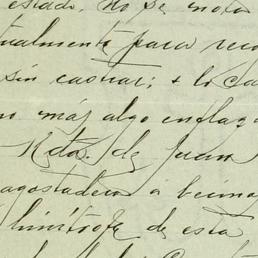 estado, no se nota
ualmente para reco
sin causar; + lo sa
no más algo enflaq
Rda. de Juan
agostadero a
limítrofe de esta